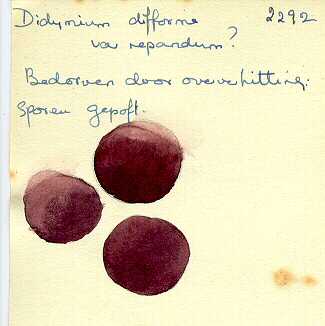 Didymium difforme 2292
var repandum?
Bedorven door oververhitting.
Sporen gepoft.